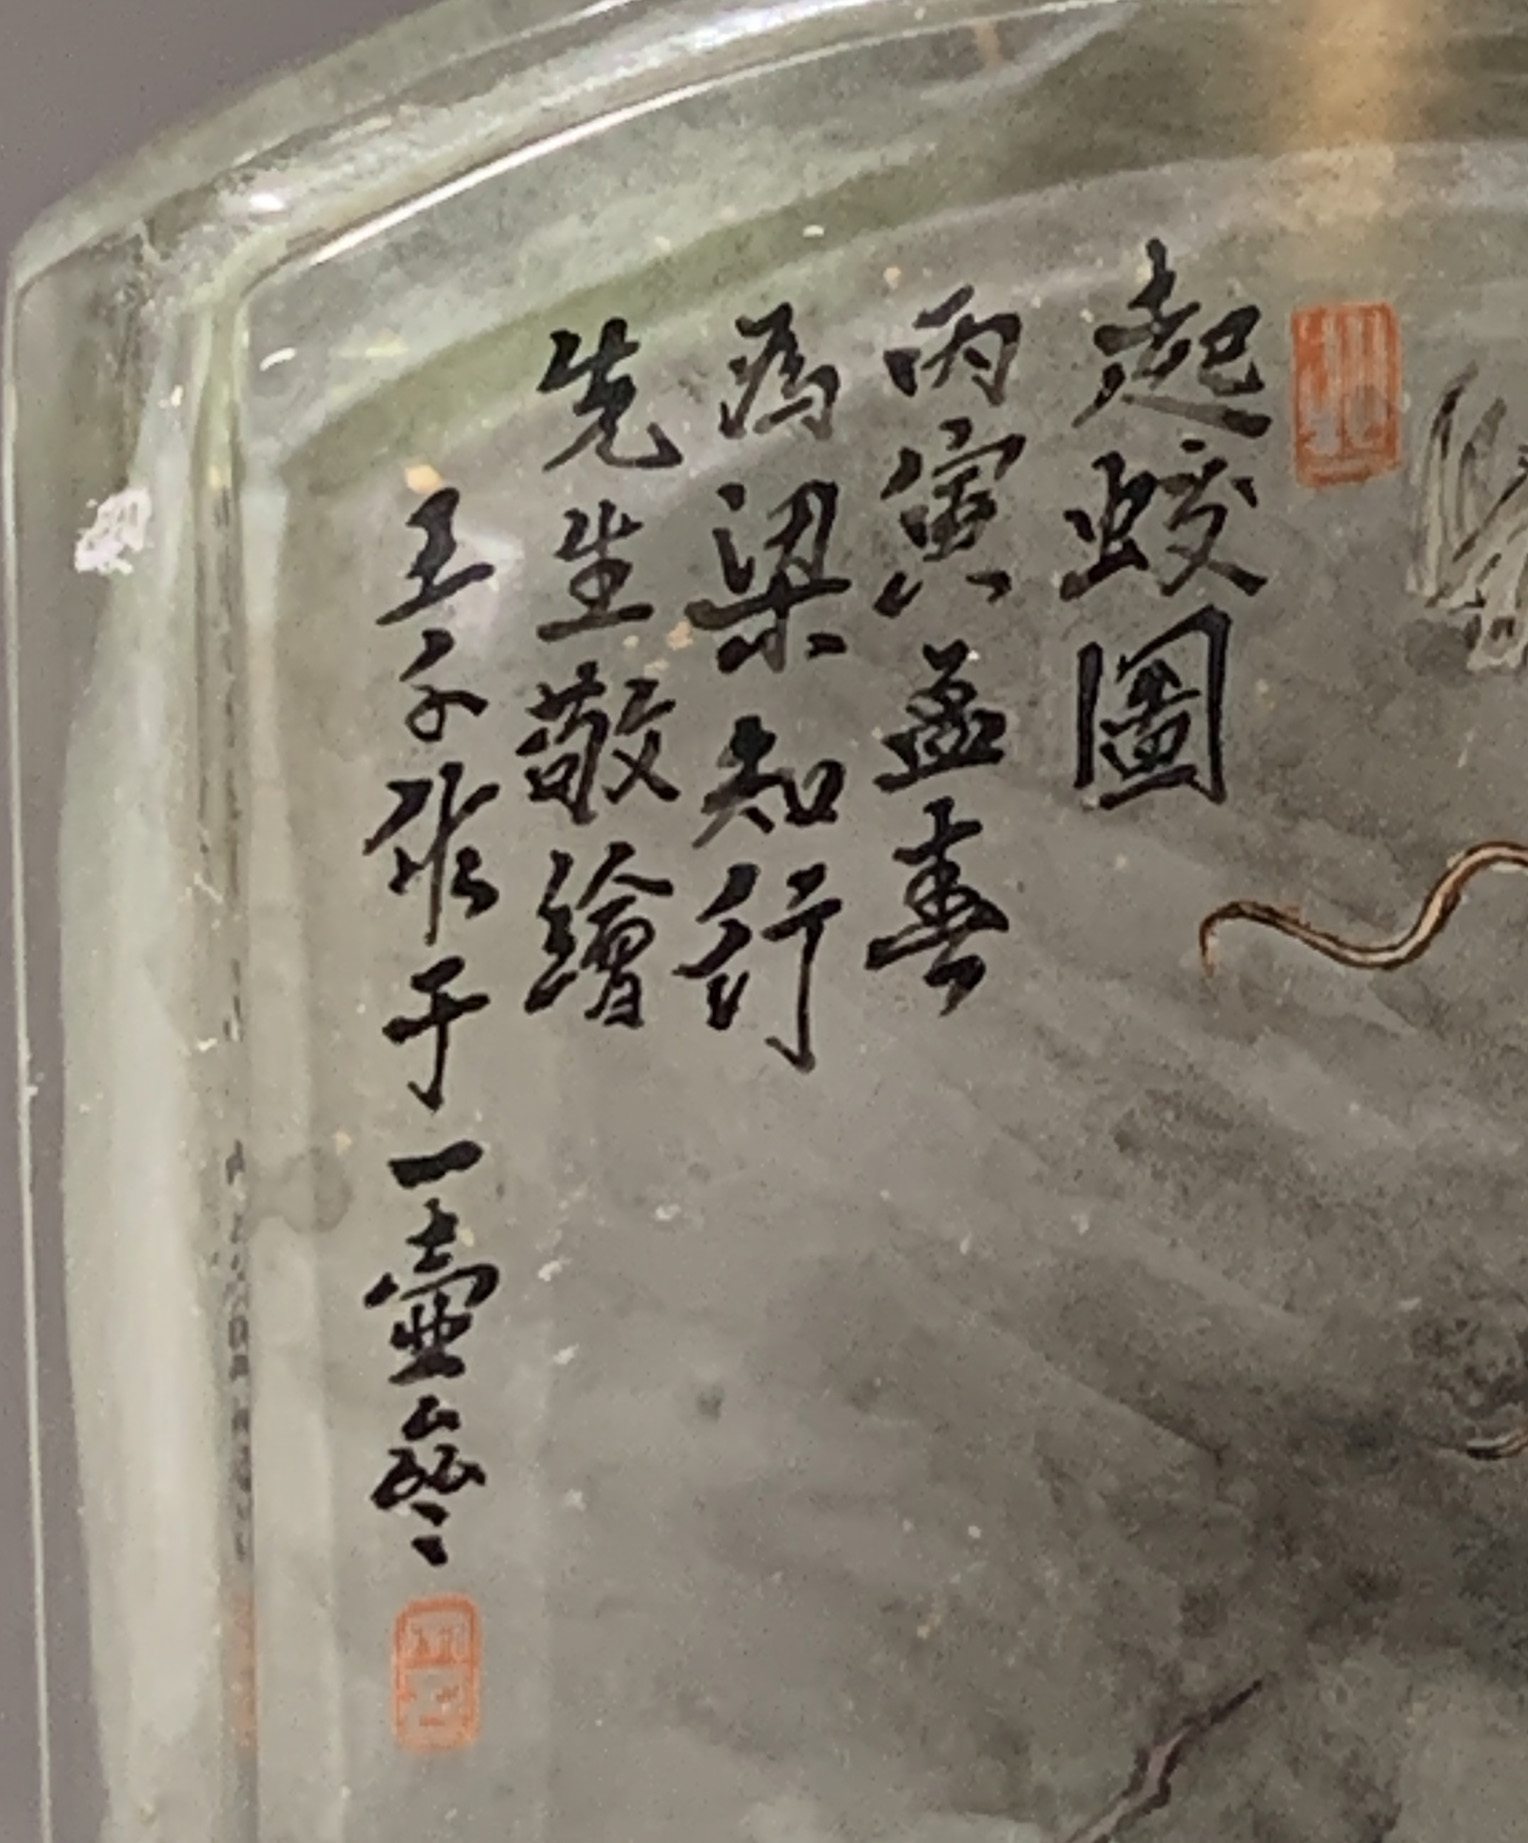 起蛟圖
丙寅孟春
為梁知行
先生敬繪
王子作于一壺齋